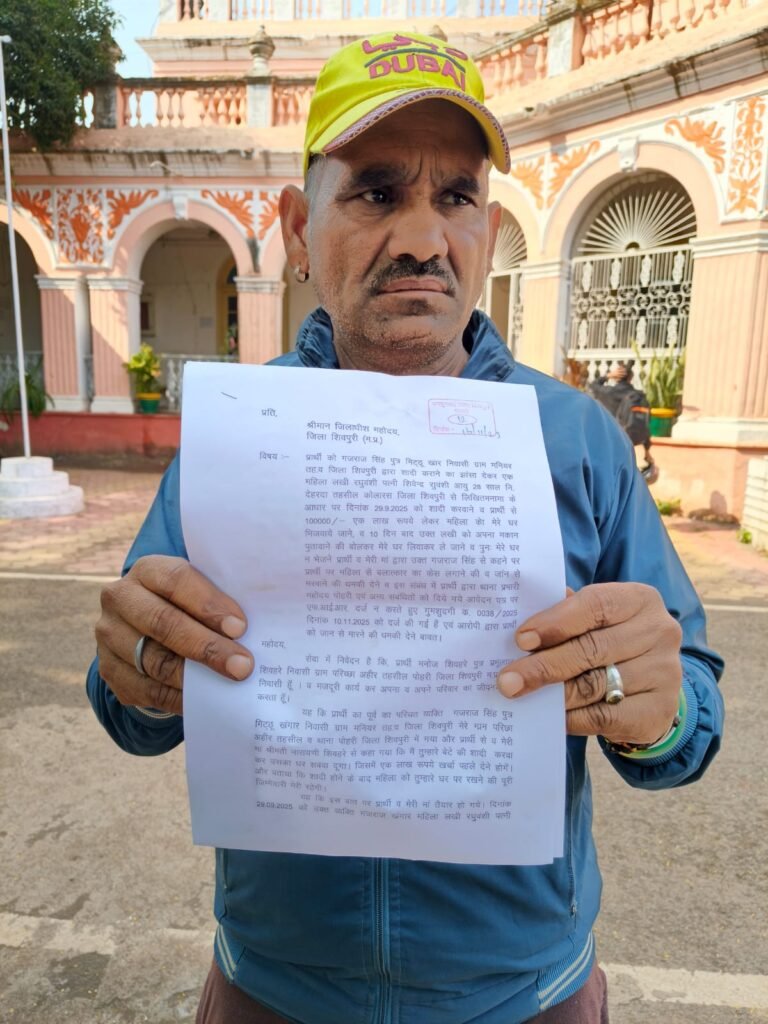 DUBAI
प्रति,
श्रीमान जिलाधीश महोदय,
जिला शिवपुरी (म.प्र.)
विषय :- प्रार्थी को गजराज सिंह पुत्र मिट्ठू खगार निवासी ग्राम मनियर
तह.व जिला शिवपुरी द्वारा शादी कराने का झांसा देकर एक
महिला लखी रघुवंशी पत्नी शिवेन्द्र रघुवंशी आयु 28 साल नि.
देहरदा तहसील कोलारस जिला शिवपुरी से लिखितनामा के
आधार पर दिनांक 29.9.2025 को शादी करवाने व प्रार्थी से
100000/- एक लाख रूपये लेकर महिला को मेरे घर
भिजवाये जाने, व 10 दिन बाद उक्त लखी को अपना मकान
पुतावाने की बोलकर मेरे घर लिवाकर ले जाने व पुनः मेरे घर
न भेजने प्रार्थी व मेरी मां द्वारा उक्त गजराज सिंह से कहने पर
प्रार्थी पर महिला से बलात्कार का केस लगाने की व जान से
मरवाने की धमकी देने व इस संबंध में प्रार्थी द्वारा थाना प्रभारी
महोदय पोहरी एवं अन्य संबंधितों को दिये गये आवेदन पत्र पर
एफ.आई.आर दर्ज न करते हुए गुमशुदगी क. 0038/2025
दिनांक 10.11.2025 को दर्ज की गई है एवं आरोपी द्वारा प्रार्थी
को जान से मारने की धमकी देने बावत।
महोदय,
सेवा में निवेदन है कि, प्रार्थी मनोज शिवहरे पुत्र
शिवहरे निवासी ग्राम परिच्छा अहीर तहसील पोहरी जिला शिवपुरी म.प्र.
निवासी हूँ। व मजदूरी कार्य कर अपना व अपने परिवार का
करता हूँ।
यह कि प्रार्थी का पूर्व का परिचित व्यक्ति गजराज सिंह पुत्र
मिट्ठू खंगार निवासी ग्राम मनियर तह.व जिला शिवपुरी मेरे ग्राम परिछा
अहीर तहसील व थाना पोहरी जिला शिवपुरी में गया और प्रार्थी से व मेरी
मां श्रीमती नारायणी शिवहरे से कहा गया कि मैं तुम्हारे बेटे की शादी करवा
कर उसका घर बसवा दूगा। जिसमें एक लाख रूपये खर्चा पहले देने होगें।
और बताया कि शादी होने के बाद महिला को तुम्हारे घर पर रखने की पूरी
जिम्मेदारी मेरी रहेगी।
यह कि इस बात पर प्रार्थी व मेरी मां तैयार हो गये। दिनांक
29.09.2025 को उक्त व्यक्ति गजराज खंगार महिला लखी रघुवंशी पत्नी